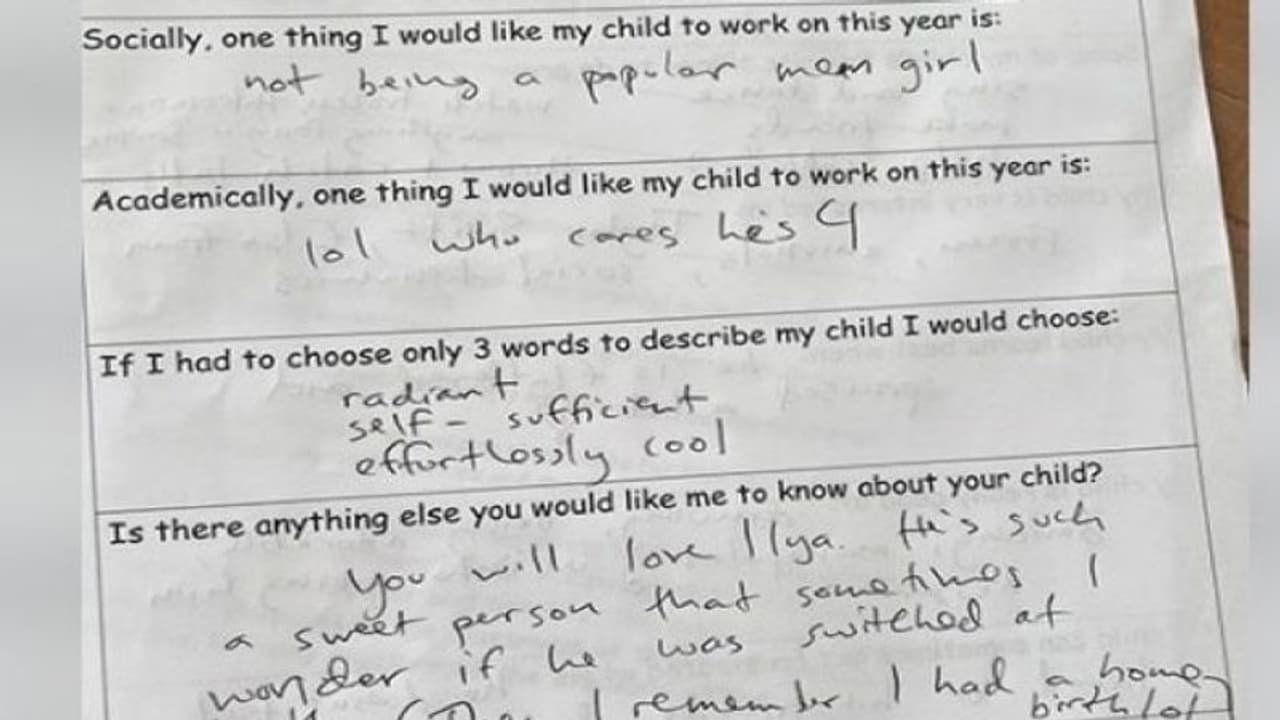 Socially, one thing I would like my child to work on this year is:
not being a popular mean girl
Academically, one thing I would like my child to work on this year is:
lol who cares he's 4
If I had to choose only 3 words to describe my child I would choose:
radiant
self-sufficient
effortlessly cool
Is there anything else you would like me to know about your child?
you will love Ilya. He's such
a sweet person that sometimes I
wonder if he was switched at
I remember I had a home
birth lol